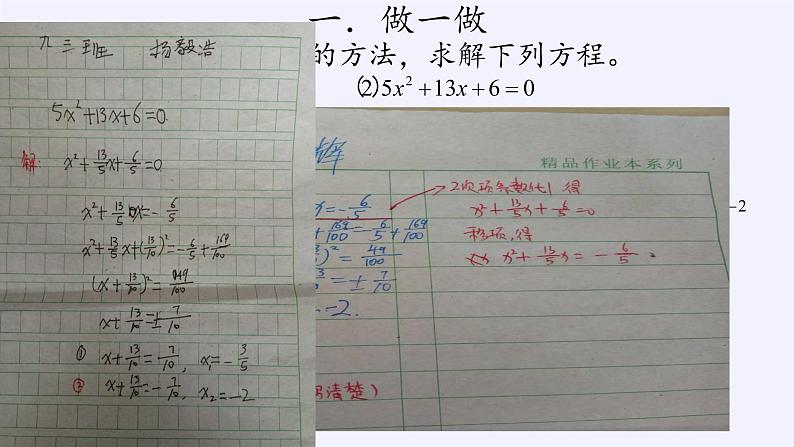 一．做一做
的方法，求解下列方程。
(2)5x²+13x+6=0
九三班 杨毅浩
5x²+13x+6=0
解: x²+13/5x+6/5=0
x²+13/5x=-6/5
x²+13/5x+(13/10)²=-6/5+169/100
(x+13/10)²=49/100
x+13/10=±7/10
① x+13/10=7/10, x₁=-3/5
② x+13/10=-7/10, x₂=-2
精品作业本系列
x=-6/5
+169/100=-6/5+169/100
)²=49/100
=±7/10
-2.
写清楚)
2次项系数化1 得
x²+13/5x+6/5=0
移项,得
x²+13/5x=-6/5
-2